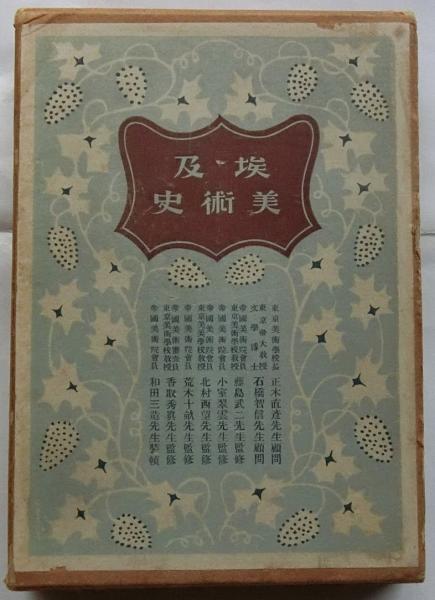 埃及
美術史
東京美術學校長
正木直彦先生顧問
東京帝大教授
文學博士
石橋智信先生顧問
帝國美術院會員
東京美術學校教授
藤島武二先生監修
帝國美術院會員
小室翠雲先生監修
帝國美術院會員
東京美術學校教授
北村西望先生監修
帝國美術院會員
荒木十畝先生監修
帝國美術院審査員
東京美術學校教授
香取秀真先生監修
帝國美術院會員
和田三造先生裝幀